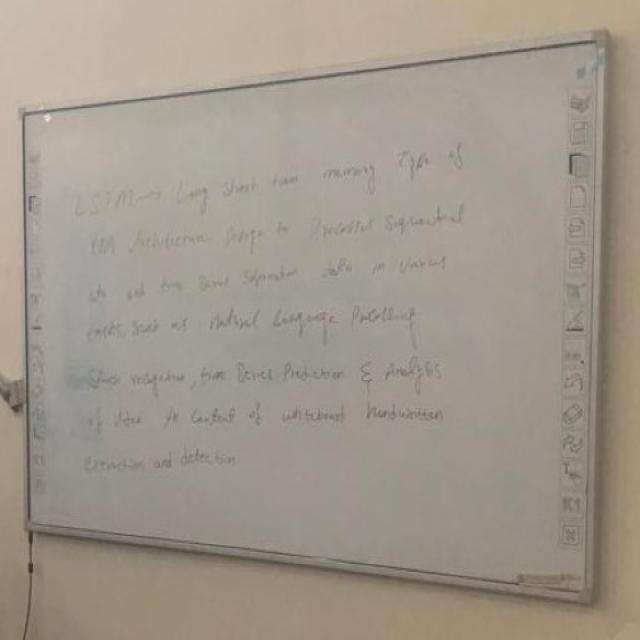 LSTM → Long short term memory Type of
RNN Architecture Design to Processes Sequential
and time Series data in various
such as Natural Language Processing
recognition, time Series Prediction & Analysis
of in context of whiteboard handwritten
extraction and detection